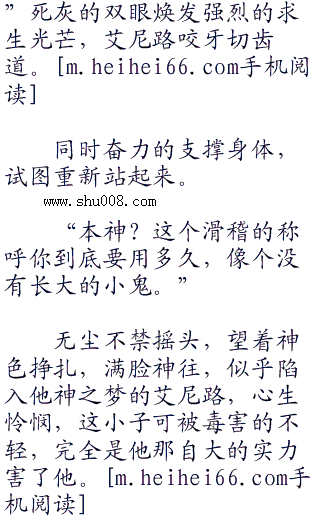 ”死灰的双眼焕发强烈的求
生光芒，艾尼路咬牙切齿
道。[m.heihei66.com手机阅
读]
同时奋力的支撑身体，
试图重新站起来。
www.shu008.com
“本神？这个滑稽的称
呼你到底要用多久，像个没
有长大的小鬼。”
无尘不禁摇头，望着神
色挣扎，满脸神往，似乎陷
入他神之梦的艾尼路，心生
怜悯，这小子可被毒害的不
轻，完全是他那自大的实力
害了他。[m.heihei66.com手
机阅读]